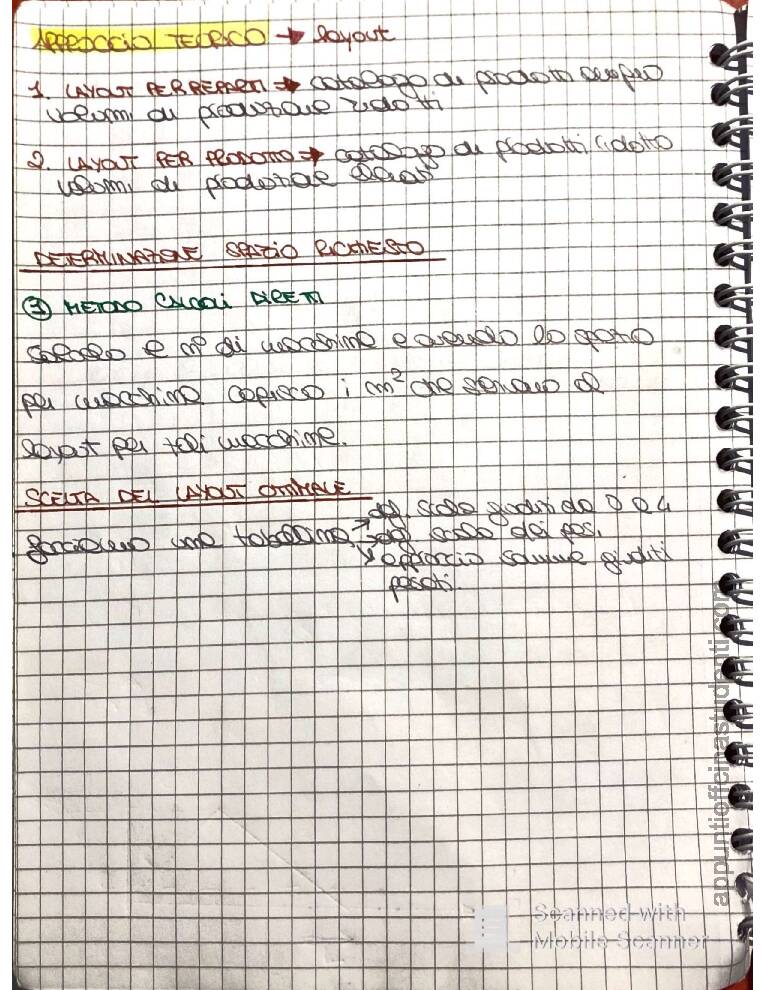 APPROCCIO TEORICO → layout
1. LAYOUT PER REPARTI → catalogo di prodotti ampio
volumi di produzione ridotti
2. LAYOUT PER PRODOTTO → catalogo di prodotti ridotto
volumi di produzione elevati
DETERMINAZIONE SPAZIO RICHIESTO
① METODO CALCOLI DIRETTI
calcolo e n° di macchine e avendo lo spazio
per macchina capisco i m² che servano al
layout per tali macchine.
SCELTA DEL LAYOUT OTTIMALE
facciamo una tabellina → def. scala giudizi da 0 a 4
→ def. scala dei pesi
↘ approccio somme giudizi
pesati.
appuntiofficinastudenti.com
Scanned with
Mobile Scanner